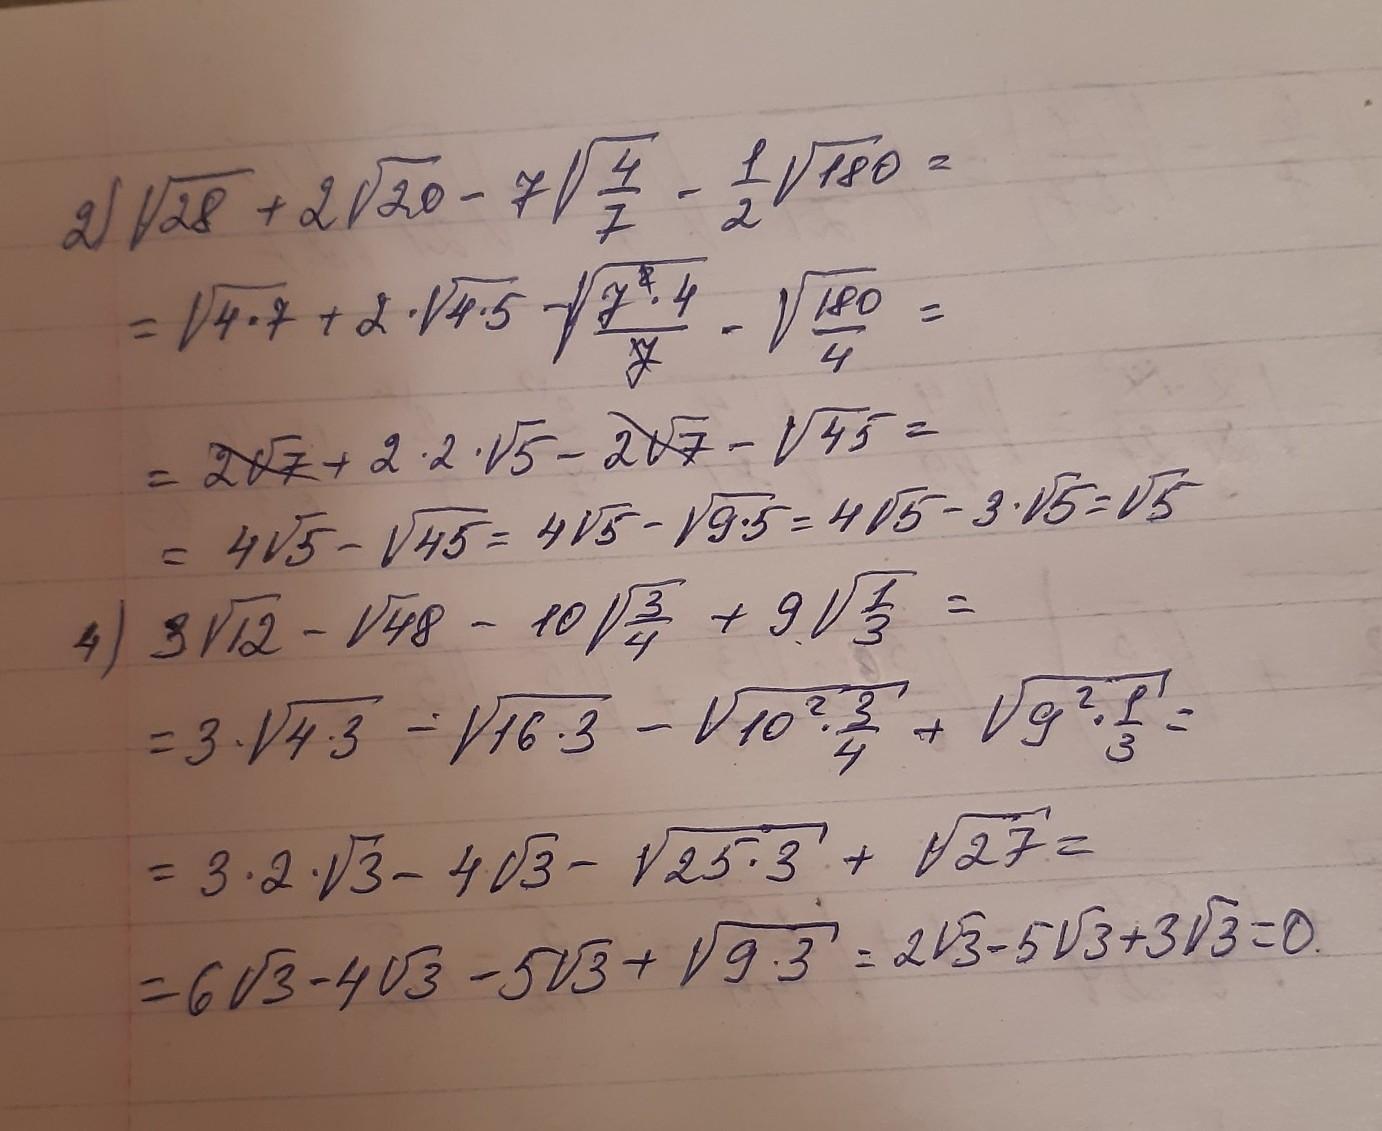 2) √28 + 2√20 - 7√(4/7) - 1/2 √180 =
= √(4·7) + 2·√(4·5) - √(7²·4/7) - √(180/4) =
= 2√7 + 2·2·√5 - 2√7 - √45 =
= 4√5 - √45 = 4√5 - √(9·5) = 4√5 - 3·√5 = √5
4) 3√12 - √48 - 10√(3/4) + 9√(1/3) =
= 3·√(4·3) - √(16·3) - √(10²·3/4) + √(9²·1/3) =
= 3·2·√3 - 4√3 - √(25·3) + √27 =
= 6√3 - 4√3 - 5√3 + √(9·3) = 2√3 - 5√3 + 3√3 = 0.